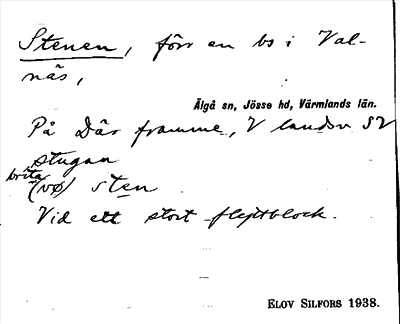 Stenen, förr en bs i Val-
näs,
Älgå sn, Jösse hd, Värmlands län.
På Där framme, V landsv SV
stugan
brita
(vø) sten
Vid ett stort flyttblock.
ELOV SILFORS 1938.